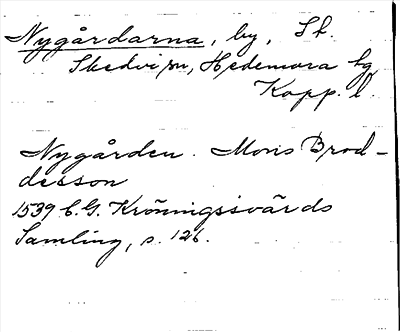 Nygårdarna, by, St.
Skedvi sn, Hedemora tg
Kopp. l.
Nygården. Mons Brod-
desson
1539 C.G. Kröningssvärds
Samling, s. 126.